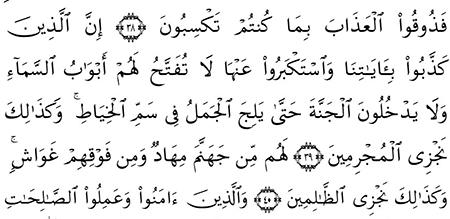 فَذُوقُوا۟ ٱلْعَذَابَ بِمَا كُنتُمْ تَكْسِبُونَ ٣٨ إِنَّ ٱلَّذِينَ
كَذَّبُوا۟ بِـَٔايَـٰتِنَا وَٱسْتَكْبَرُوا۟ عَنْهَا لَا تُفَتَّحُ لَهُمْ أَبْوَٰبُ ٱلسَّمَآءِ
وَلَا يَدْخُلُونَ ٱلْجَنَّةَ حَتَّىٰ يَلِجَ ٱلْجَمَلُ فِى سَمِّ ٱلْخِيَاطِ ۚ وَكَذَٰلِكَ
نَجْزِى ٱلْمُجْرِمِينَ ٣٩ لَهُم مِّن جَهَنَّمَ مِهَادٌ وَمِن فَوْقِهِمْ غَوَاشٍ ۚ
وَكَذَٰلِكَ نَجْزِى ٱلظَّـٰلِمِينَ ٤٠ وَٱلَّذِينَ ءَامَنُوا۟ وَعَمِلُوا۟ ٱلصَّـٰلِحَـٰتِ